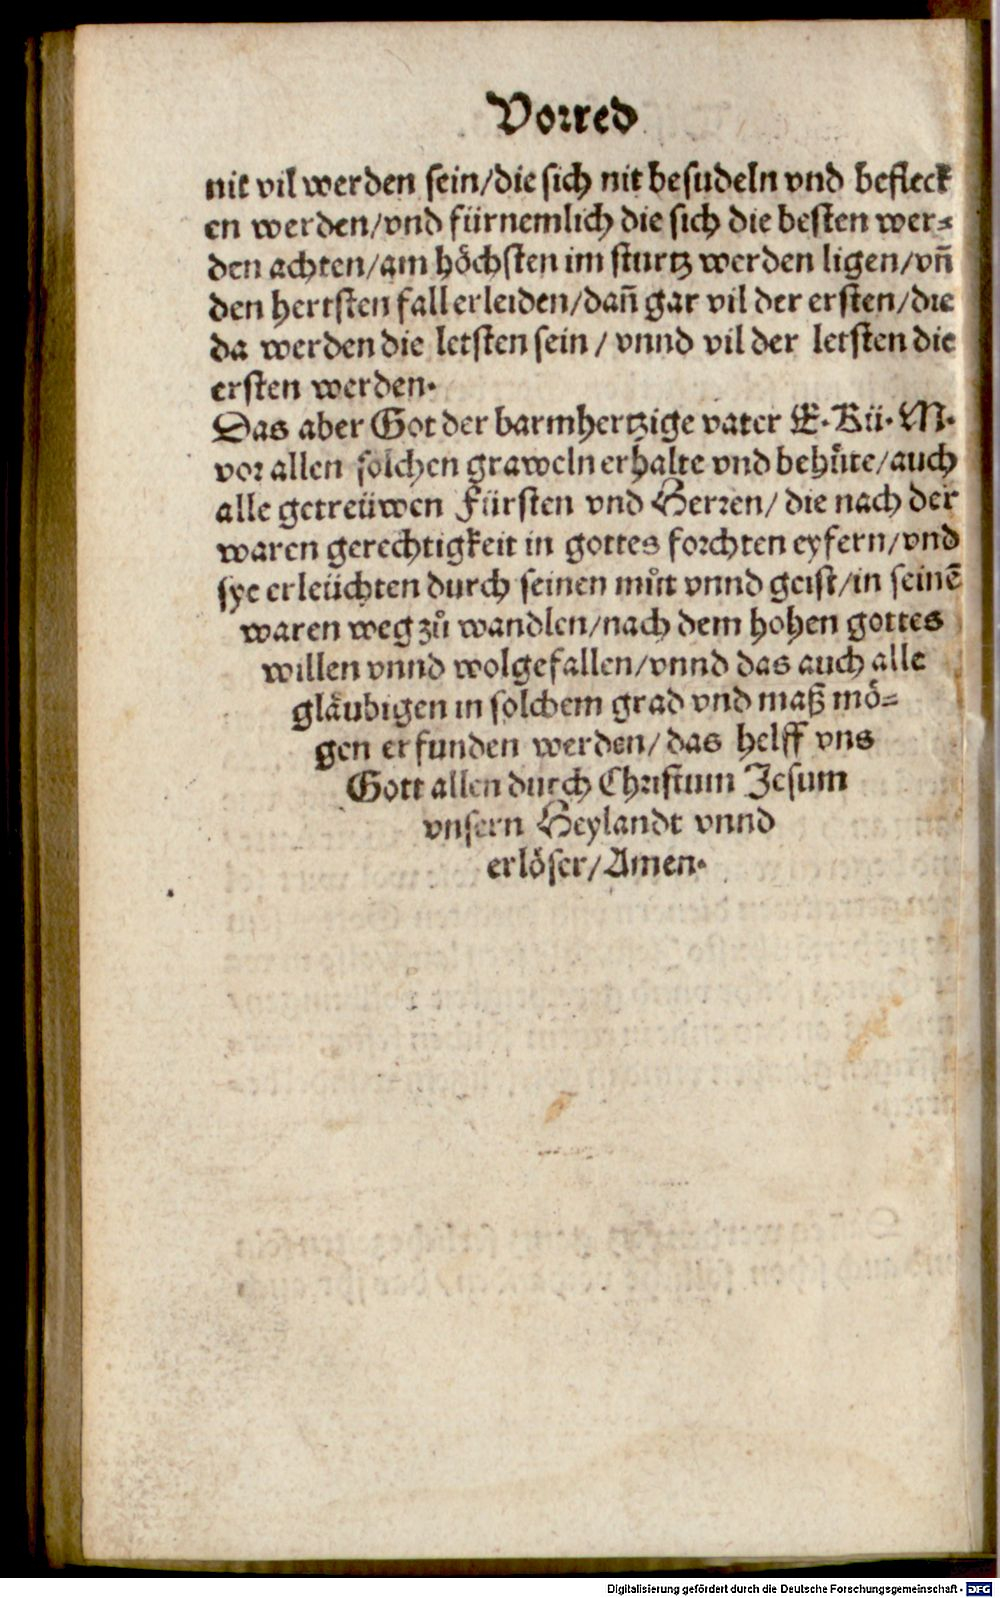 Vorred
nit vil werden sein/die sich nit besudeln vnd befleck
en werden/vnd fürnemlich die sich die besten wer⸗
den achten/am höchsten im sturtz werden ligen/vn̄
den hertsten fall erleiden/dan̄ gar vil der ersten/die
da werden die letsten sein / vnnd vil der letsten die
ersten werden.
Das aber Got der barmhertzige vater E. Kü. M.
vor allen solchen graweln erhalte vnd behuͤte/auch
alle getreüwen Fürsten vnd Herren/ die nach der
waren gerechtigkeit in gottes forchten eyfern/vnd
sye erleüchten durch seinen muͦt vnnd geist/in seinē
waren weg zuͦ wandlen/nach dem hohen gottes
willen vnnd wolgefallen/vnnd das auch alle
glaͤubigen in solchem grad vnd maß mö⸗
gen erfunden werden/das helff vns
Gott allen durch Christum Jesum
vnsern Heylandt vnnd
erlöser/Amen.
Digitalisierung gefördert durch die Deutsche Forschungsgemeinschaft - DFG